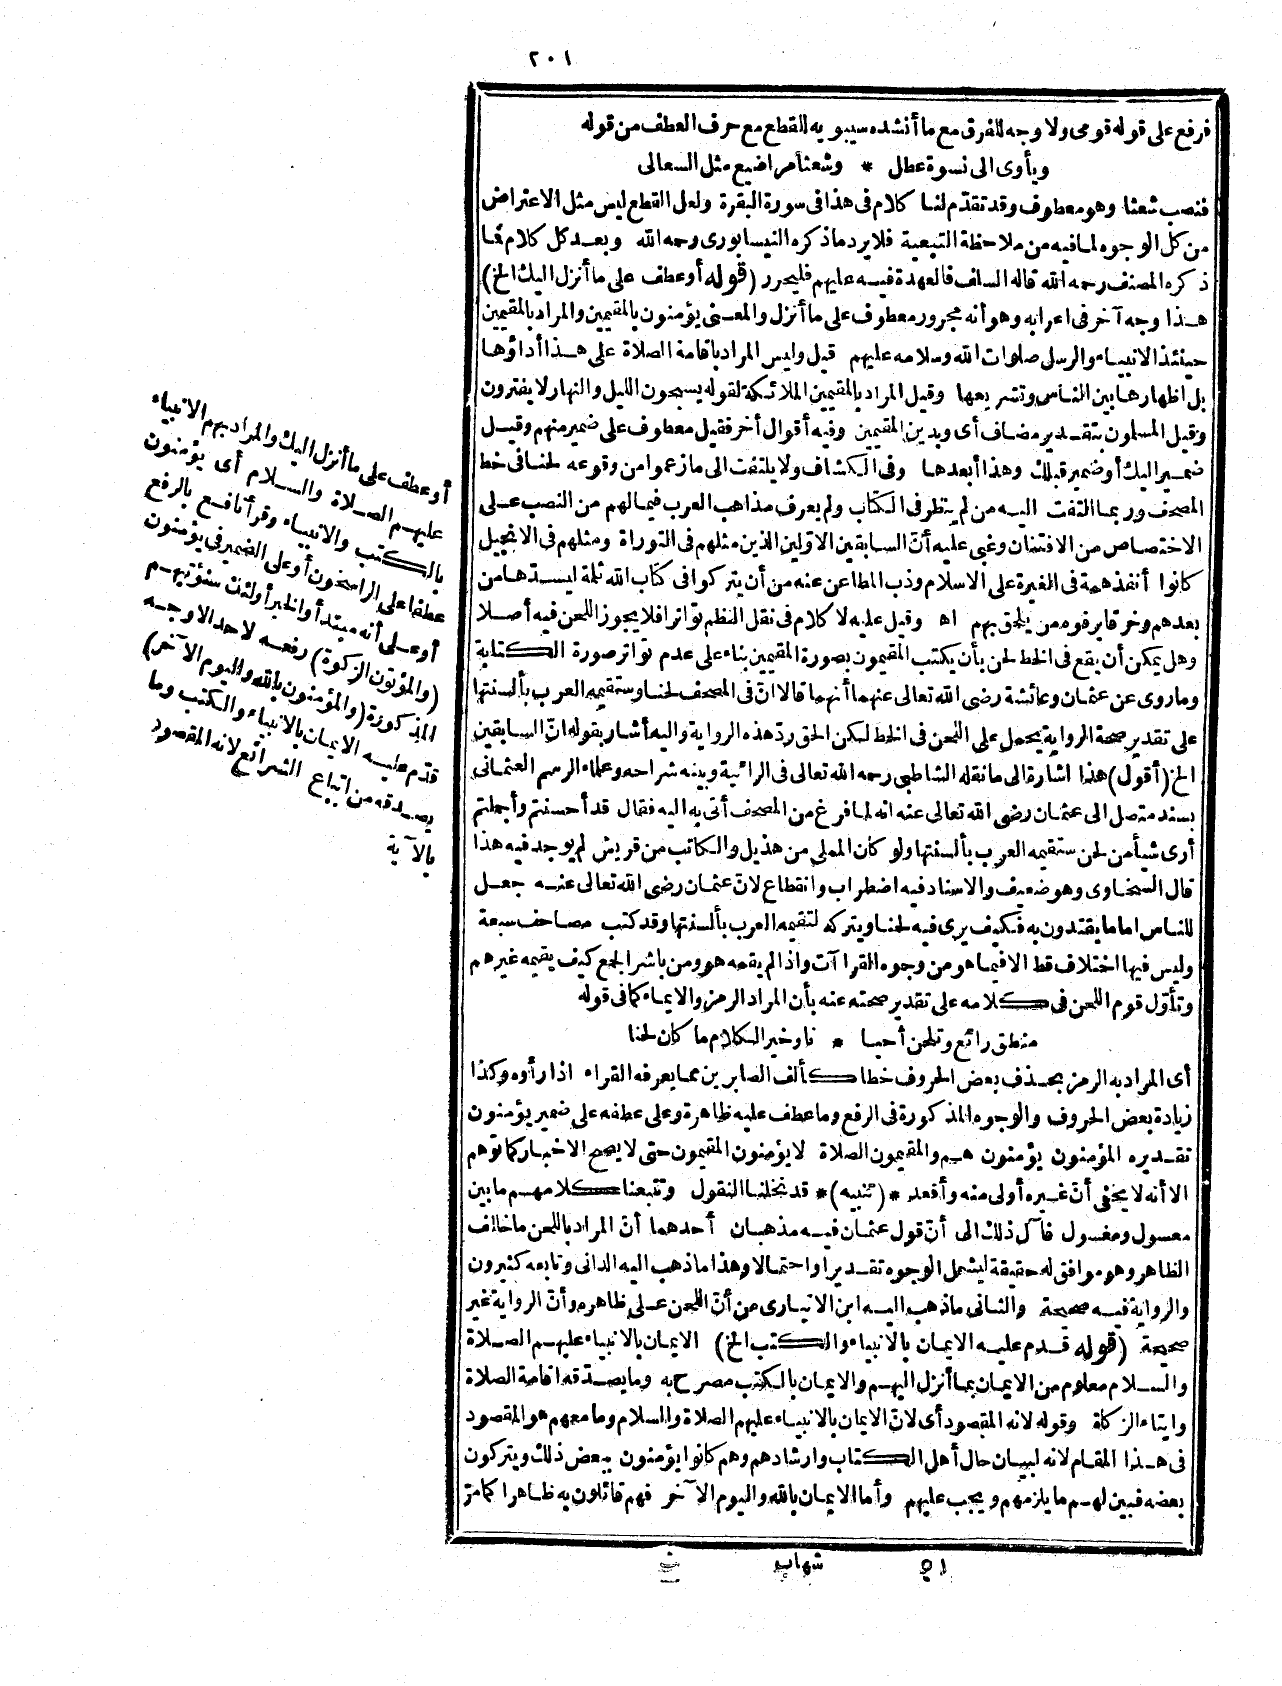 ٢٠١
فرفع على قوله قومى ولا وجه للفرق مع ما أنشده سيبويه للقطع مع حرف العطف من قوله
ويأوى الى نسوة عطل * وشعثا مراضيع مثل السعالى
فنصب شعثا وهو معطوف وقد تقدّم لنا كلام فى هذا فى سورة البقرة ولعل القطع ليس مثل الاعتراض
من كل الوجوه لما فيه من ملاحظة التبعية فلا يرد ما ذكره النيسابورى رحمه الله وبعد كل كلام فما
ذكره المصنف رحمه الله قاله السلف فالعهدة فيه عليهم فليحرر (قوله أو عطف على ما أنزل اليك الخ)
هذا وجه آخر فى اعرابه وهو أنه مجرور معطوف على ما أنزل والمعنى يؤمنون بالمقيمين والمراد بالمقيمين
حينئذ الانبياء والرسل صلوات الله وسلامه عليهم قيل وليس المراد باقامة الصلاة على هذا أداؤها
بل اظهارها بين الناس وتشريعها وقيل المراد بالمقيمين الملائكة لقوله يسبحون الليل والنهار لا يفترون
وقيل المسلمون بتقدير مضاف أى وبدين المقيمين وفيه أقوال أخر فقيل معطوف على ضمير منهم وقيل
ضمير اليك أو ضمير قبلك وهذا أبعدها وفى الكشاف ولا يلتفت الى ما زعموا من وقوعه لحنا فى خط
المصحف وربما التفت اليه من لم ينظر فى الكتاب ولم يعرف مذاهب العرب فيما لهم من النصب على
الاختصاص من الافتنان وغبى عليه أنّ السابقين الاوّلين الذين مثلهم فى التوراة ومثلهم فى الانجيل
كانوا أنفذ همة فى الغيرة على الاسلام وذب المطاعن عنه من أن يتركوا فى كتاب الله ثلمة ليسدّها من
بعدهم وخرقا يرفوه من يلحق بهم اه وقيل عليه لا كلام فى نقل النظم تواترا فلا يجوز اللحن فيه أصلا
وهل يمكن أن يقع فى الخط لحن بأن يكتب المقيمون بصورة المقيمين بناء على عدم تواتر صورة الكتابة
وما روى عن عثمان وعائشة رضى الله تعالى عنهما أنهما قالا انّ فى المصحف لحنا وستقيمه العرب بألسنتها
على تقدير صحة الرواية يحمل على اللحن فى الخط لكن الحق ردّ هذه الرواية واليه أشار بقوله انّ السابقين
الخ (أقول) هذا اشارة الى ما نقله الشاطبى رحمه الله تعالى فى الرائية وبينه شراحه وعلماء الرسم العثمانى
بسند متصل الى عثمان رضى الله تعالى عنه انه لما فرغ من المصحف أتى به اليه فقال قد أحسنتم وأجملتم
أرى شيأ من لحن ستقيمه العرب بألسنتها ولو كان المملى من هذيل والكاتب من قريش لم يوجد فيه هذا
قال السخاوى وهو ضعيف والاسناد فيه اضطراب وانقطاع لانّ عثمان رضى الله تعالى عنه جعل
للناس اماما يقتدون به فكيف يرى فيه لحنا ويتركه لتقيمه العرب بألسنتها وقد كتب مصاحف سبعة
وليس فيها اختلاف قط الا فيما هو من وجوه القراآت واذا لم يقمه هو ومن باشر الجمع كيف يقيمه غيرهم
وتأوّل قوم اللحن فى كلامه على تقدير صحته عنه بأن المراد الرمز والايماء كما فى قوله
منطق رائع وتلحن أحيا * نا وخير الكلام ما كان لحنا
أى المراد به الرمز بحذف بعض الحروف خطا كألف الصابرين مما يعرفه القراء اذا رأوه وكذا
زيادة بعض الحروف والوجوه المذكورة فى الرفع وما عطف عليه ظاهرة وعلى عطفه على ضمير يؤمنون
تقديره المؤمنون يؤمنون هم والمقيمون الصلاة لا يؤمنون المقيمون حتى لا يصح الاخبار كما توهم
الا أنه لا يخفى أنّ غيره أولى منه وأقعد *(تنبيه)* قد نخلنا النقول وتتبعنا كلامهم ما بين
معسول ومغسول فآل ذلك الى أنّ قول عثمان فيه مذهبان أحدهما أنّ المراد باللحن ما خالف
الظاهر وهو موافق له حقيقة ليشمل الوجوه تقديرا واحتمالا وهذا ما ذهب اليه الدانى وتابعه كثيرون
والرواية فيه صحيحة والثانى ما ذهب اليه ابن الانبارى من أنّ اللحن على ظاهره وأنّ الرواية غير
صحيحة (قوله قدم عليه الايمان بالانبياء والكتب الخ) الايمان بالانبياء عليهم الصلاة
والسلام معلوم من الايمان بما أنزل اليهم والايمان بالكتب مصرح به وما يصدقه اقامة الصلاة
وايتاء الزكاة وقوله لانه المقصود أى لانّ الايمان بالانبياء عليهم الصلاة والسلام وما معهم هو المقصود
فى هذا المقام لانه لبيان حال أهل الكتاب وارشادهم وهم كانوا يؤمنون ببعض ذلك ويتركون
بعضه فبين لهم ما يلزمهم ويجب عليهم وأما الايمان بالله واليوم الآخر فهم قائلون به ظاهرا كما مرّ
أو عطف على ما أنزل اليك والمراد بهم الانبياء
عليهم الصلاة والسلام أى يؤمنون
بالكتب والانبياء وقرأ نافع بالرفع
عطفا على الراسخون أو على الضمير فى يؤمنون
أو على أنه مبتدأ والخبر أولئك سنؤتيهم
(والمؤتون الزكوة) رفعه لاحد الاوجه
المذكورة (والمؤمنون بالله واليوم الآخر)
قدّم عليه الايمان بالانبياء والكتب وما
يصدقه من اتباع الشرائع لانه المقصود
بالآية
٥١ شهاب ث